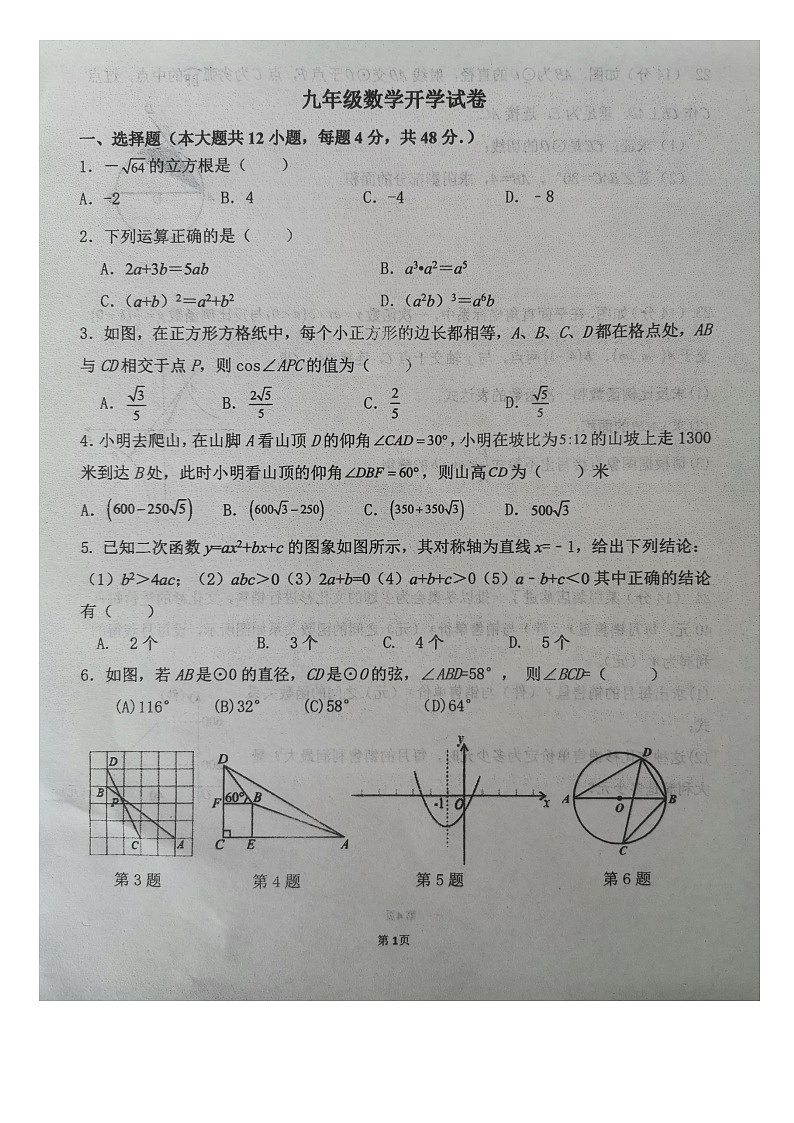 九年级数学开学试卷
一、选择题（本大题共 12 小题，每题 4 分，共 48 分.）
1. －√64 的立方根是（　　）
A. -2　B. 4　C. -4　D. ﹣8
2. 下列运算正确的是（　　）
A. 2a+3b＝5ab　B. a³•a²＝a⁵
C.（a+b）²＝a²+b²　D.（a²b）³＝a⁶b
3. 如图，在正方形方格纸中，每个小正方形的边长都相等，A、B、C、D 都在格点处，AB
与 CD 相交于点 P，则 cos∠APC 的值为（　　）
A. √3/5　B. 2√5/5　C. 2/5　D. √5/5
4. 小明去爬山，在山脚 A 看山顶 D 的仰角∠CAD＝30°，小明在坡比为 5:12 的山坡上走 1300
米到达 B 处，此时小明看山顶的仰角∠DBF＝60°，则山高 CD 为（　　）米
A. (600－250√5)　B. (600√3－250)　C. (350+350√3)　D. 500√3
5. 已知二次函数 y=ax²+bx+c 的图象如图所示，其对称轴为直线 x=﹣1，给出下列结论：
（1）b²＞4ac；（2）abc＞0（3）2a+b=0（4）a+b+c＞0（5）a﹣b+c＜0 其中正确的结论
有（　　）
A. 2 个　B. 3 个　C. 4 个　D. 5 个
6. 如图，若 AB 是⊙O 的直径，CD 是⊙O 的弦，∠ABD=58°， 则∠BCD=（　　）
(A)116°　(B)32°　(C)58°　(D)64°
D B P C A
D F 60° B C E A
y -1 O x
D A O B C
第 3 题　第 4 题　第 5 题　第 6 题
第 1页